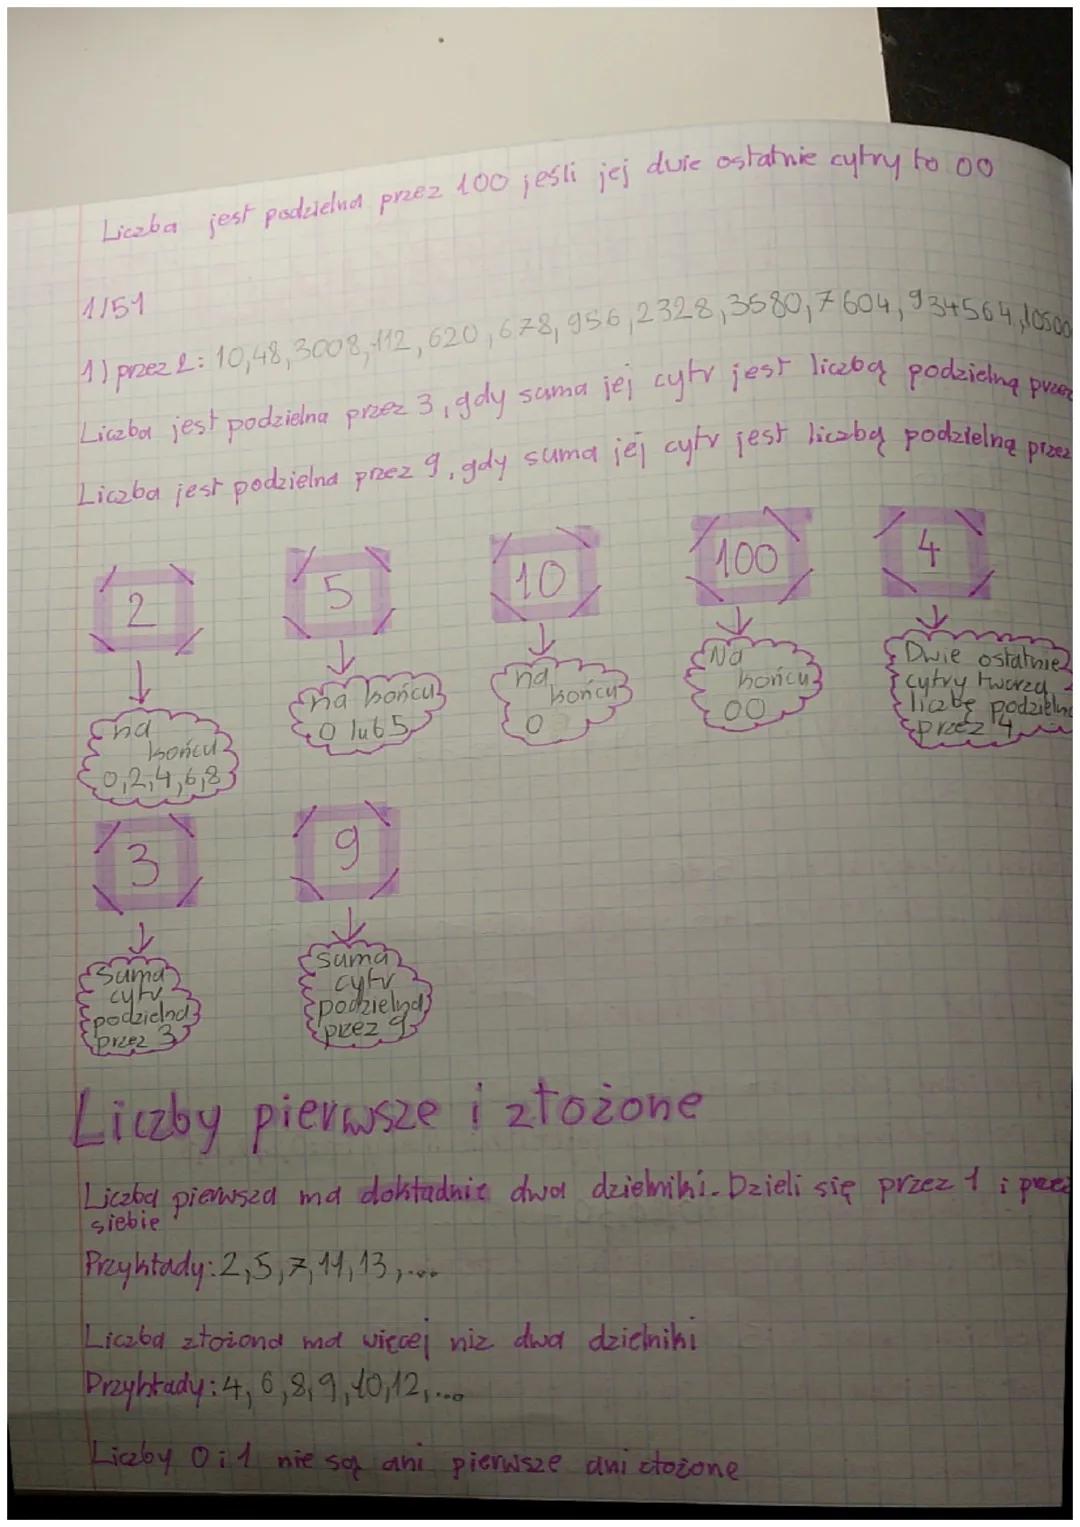 Liczba jest podzielna przez 100 jeśli jej dwie ostatnie cyfry to 00
1/51
1) przez 2: 10,48,3008,112,620,678,956,2328,3580,7604,934564,10500
Liczba jest podzielna przez 3, gdy suma jej cyfr jest liczbą podzielną przez
Liczba jest podzielna przez 9, gdy suma jej cyfr jest liczbą podzielną przez
2
5
10
100
4
na
końcu
0,2,4,6,8
na końcu
0 lub 5
na
końcu
0
Na
końcu
00
Dwie ostatnie
cyfry tworzą
liczbę podzielną
przez 4
3
9
Suma
cyfr
podzielna
przez 3
Suma
cyfr
podzielna
przez 9
Liczby pierwsze i złożone
Liczba pierwsza ma dokładnie dwa dzielniki. Dzieli się przez 1 i przez
siebie
Przykłady: 2,5,7,11,13,...
Liczba złożona ma więcej niż dwa dzielniki
Przykłady: 4,6,8,9,10,12,...
Liczby 0 i 1 nie są ani pierwsze ani złożone